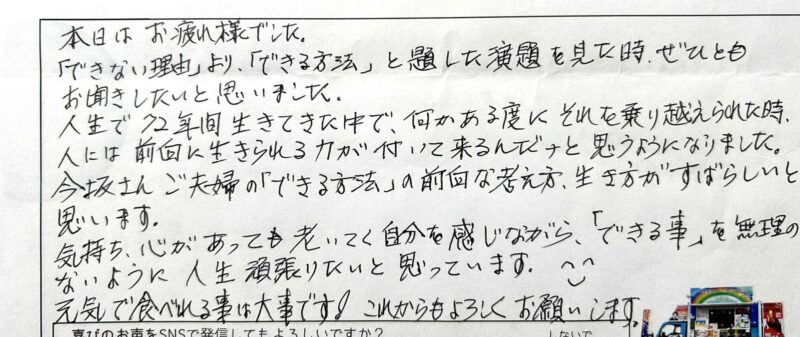 本日は お疲れ様でした。
「できない理由」より、「できる方法」と題した演題を見た時、ぜひとも
お聞きしたいと思いました。
人生で72年間生きてきた中で、何かある度に それを乗り越えられた時、
人には前向に生きられる力が付いて来るんだナと思うようになりました。
今坂さんご夫婦の「できる方法」の前向な考え方、生き方がすばらしいと
思います。
気持ち、心があっても老いてく自分を感じながら、「できる事」を無理の
ないように人生頑張りたいと思っています。
元気で食べれる事は大事です! これからもよろしくお願いします。
喜びのお声をSNSで発信してもよろしいですか?